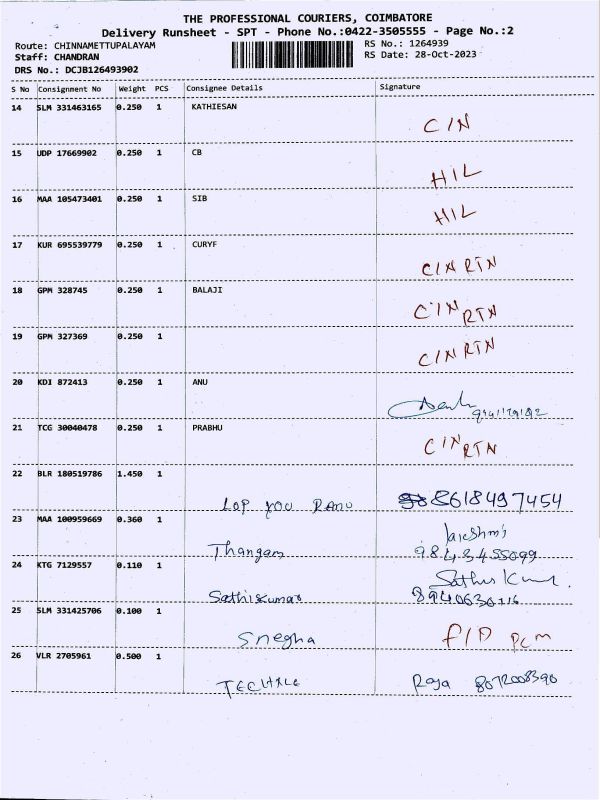 THE PROFESSIONAL COURIERS, COIMBATORE
Delivery Runsheet - SPT - Phone No.:0422-3505555 - Page No.:2
Route: CHINNAMETTUPALAYAM RS No.: 1264939
Staff: CHANDRAN RS Date: 28-Oct-2023
DRS No.: DCJB126493902
S No Consignment No Weight PCS Consignee Details Signature
14 SLM 331463165 0.250 1 KATHIESAN
C/N
15 UDP 17669902 0.250 1 CB
H/L
16 MAA 105473401 0.250 1 SIB
H/L
17 KUR 695539779 0.250 1 CURYF
C/N RTN
18 GPM 328745 0.250 1 BALAJI
C/N RTN
19 GPM 327369 0.250 1
C/N RTN
20 KDI 872413 0.250 1 ANU
21 TCG 30040478 0.250 1 PRABHU
C/N RTN
22 BLR 180519786 1.450 1
LOP YOU 8618497454
23 MAA 100959669 0.360 1
Thangam 9843455099
24 KTG 7129557 0.110 1
Sathiskumar Sathis Kumar
25 SLM 331425706 0.100 1
Snegha P/D PCM
26 VLR 2705961 0.500 1
Raja 8072008390